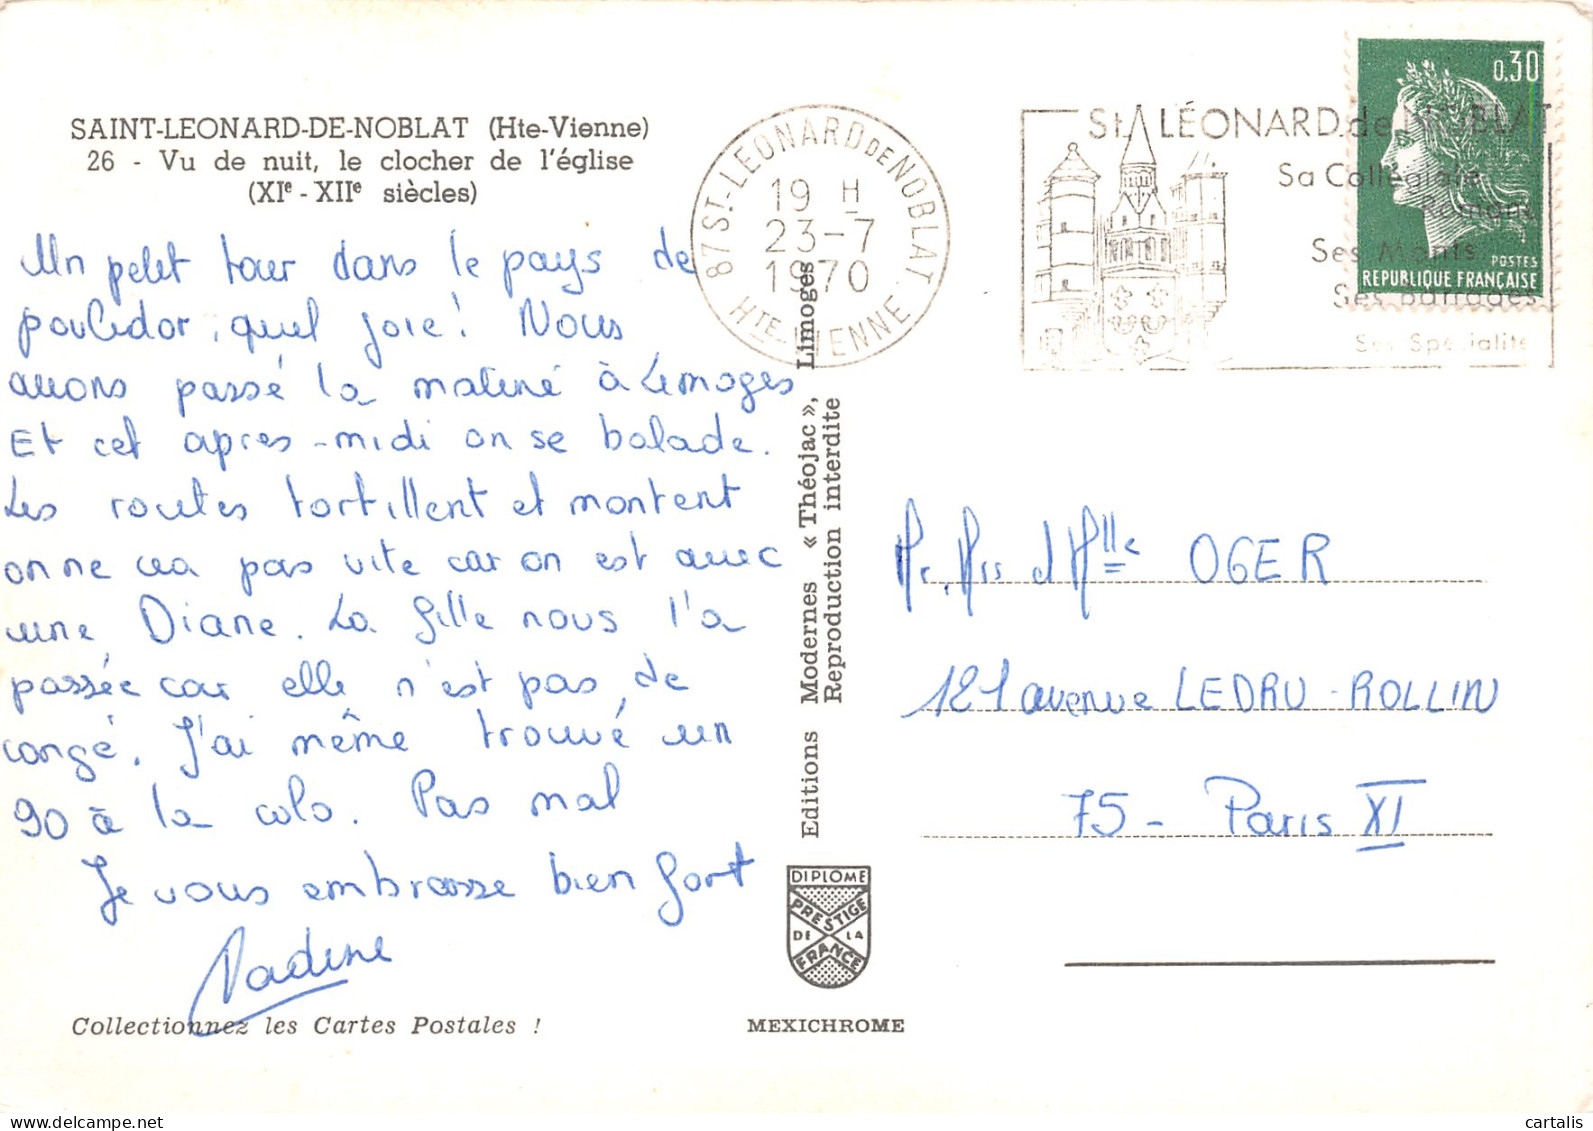 SAINT-LEONARD-DE-NOBLAT (Hte-Vienne)
26 - Vu de nuit, le clocher de l'église
(XIe - XIIe siècles)
Un petit tour dans le pays de
poulidor, quel joie! Nous
avons passé la matiné à Limoges
Et cet apres-midi on se balade.
Les routes tortillent et montent
on ne va pas vite car on est avec
une Diane. La fille nous l'a
passée car elle n'est pas de
congé. J'ai même trouvé un
90 à la colo. Pas mal
Je vous embrasse bien fort
Nadine
Collectionnez les Cartes Postales !
Editions Modernes « Théojac », Limoges
Reproduction interdite
DIPLOME
PRESTIGE
DE LA
FRANCE
MEXICHROME
87 ST-LEONARD DE NOBLAT
19 H
23-7
1970
HTE-VIENNE
St LÉONARD de NOBLAT
Sa Collégiale
Romane
Ses Monts
Ses Barrages
Ses Spécialités
0,30
POSTES
REPUBLIQUE FRANÇAISE
Mr, Mrs et Mlle OGER
121 avenue LEDRU-ROLLIN
75 - Paris XI